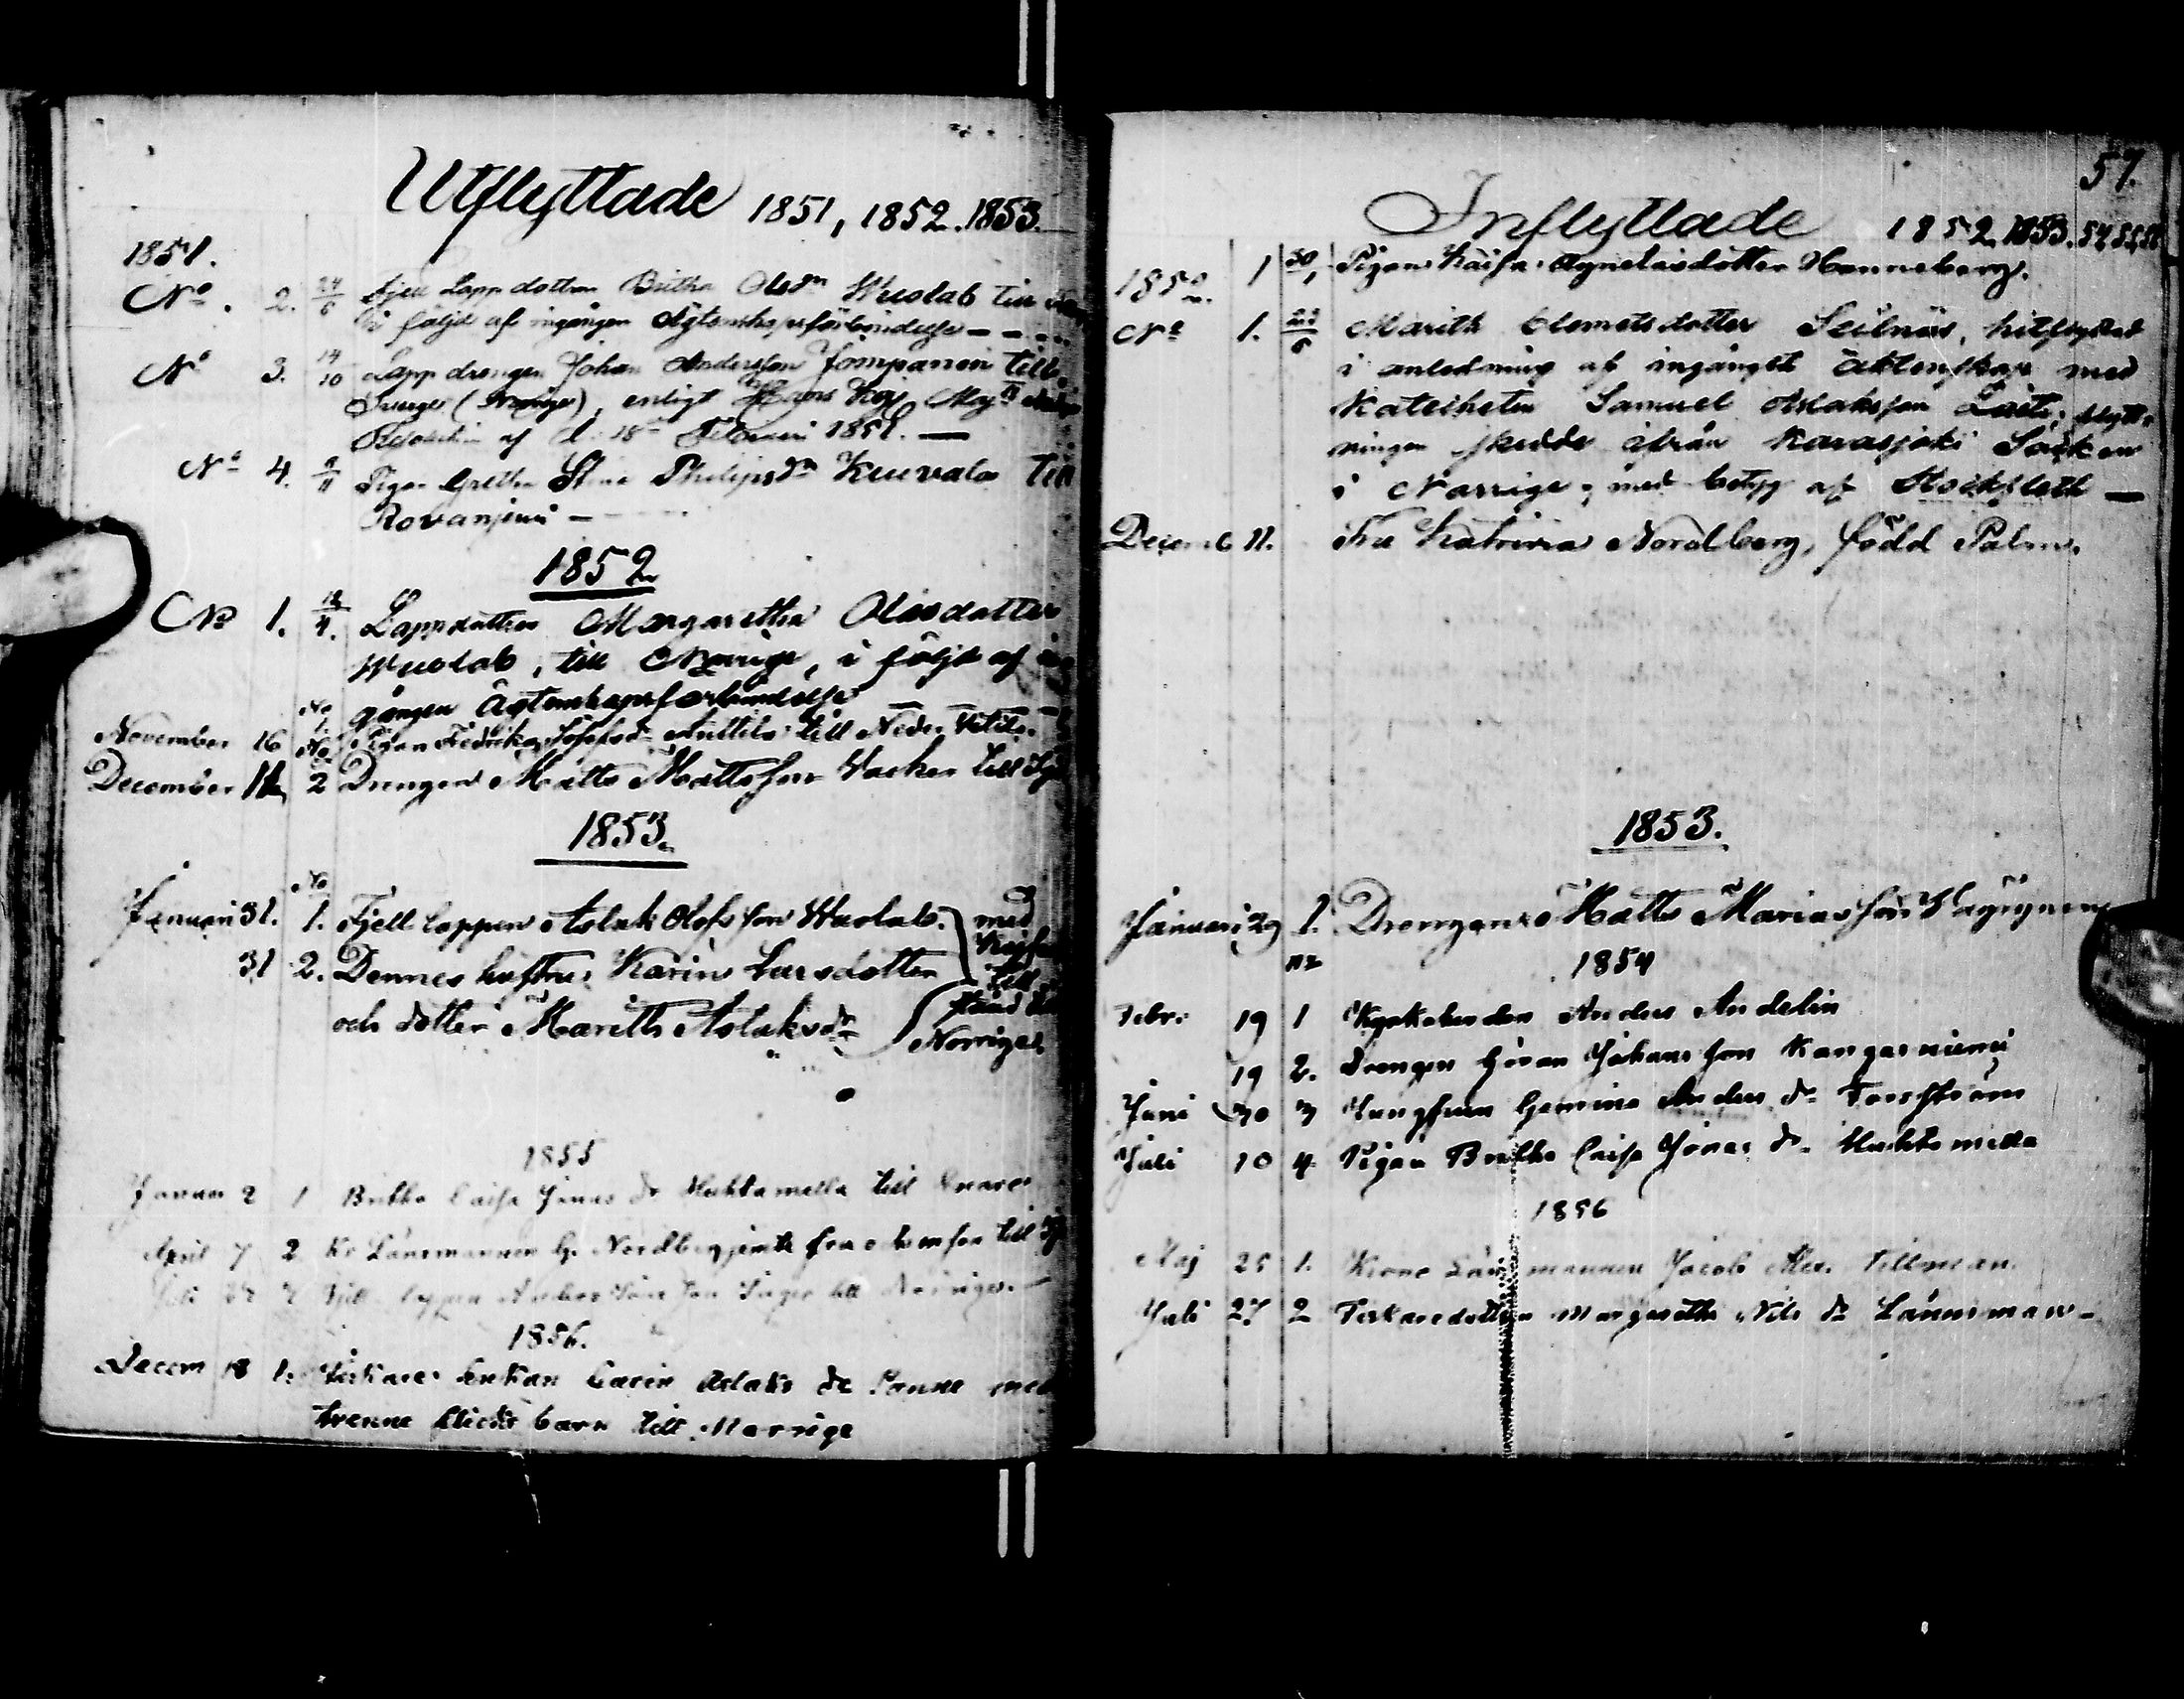 Utflyttade 1851, 1852. 1853.
1851.
No. 2. 24/6 Fjell Lapp dottren Britha Olsdr Wuolab till
i följd af ingången Ägtenskapsförbindelse
No 3. 14/10 Lapp drengen Johan Andersson Jompanen till
(Norriges), enligt Hans Kejs. Maj:ts
Resolution af d. 18de Februari 1851.
No 4. 9/11 Pigan Gretha Stina Philipsdr Kuvala till
Rovaniemi
1852
No 1. Lappdottren Margaretha Olasdotter
Wuolab, till Norrige, i följd af in
gången Ägtenskapsförbindelse
November 16 No 1. Pigan Fredrika Josefsdr Anttila till Neder Vetil.
December 2 Drengen Matts Mattsson Vacker till
1853.
Januari 31. No 1. Fjell lappen Aslak Olofsson Wuolab. med
31 2. Dennes hustru Karin Larsdotter till
och dotter Marith Aslaksdr Norriges
1855
Januar 2 1 Britha Caisa Jonas dr Muhtamella till Enare
April 7 2 Kr Länsmannen G. Nordberg jemte fru och en son till
Juli lappen Anders till Norriges
1856.
Decem 18 1. Fiskare enkan Carin Aslaks dr Sanne med
trenne barn till Norrige
57.
Inflyttade 1852. 1853. 54, 55, 56
1852. 1 30/1 Pigan Kaisa Agnetasdotter Henneberg.
No 1. 22/6 Marith Clemetsdotter hitflyttad
i anledning af ingånget äktenskap med
Katecheten Samuel Aslaksson flytt-
ningen skedde ifrån Karasjoki Socken
i Norrige, med betyg af Stockfleth
Decemb 11. Fru Katrina Nordberg, född Palm.
1853.
Januari 29 1. Drengen Matts Mariasson Wäyrynen
1854
Febr: 19 No 1 Anders Andelin
19 2. Drengen Göran Johansson Kangasniemi
Juni 30 3 Jungfrun Anders dr Forsström
Juli 10 4 Pigan Britha Caisa Jonas dr Muhtamella
1856
Maj 25 1. Krono Länsmannen Jacob Alex. Tillman.
Juli 27 2 Fiskaredottren Margaretha Nils dr Länsman